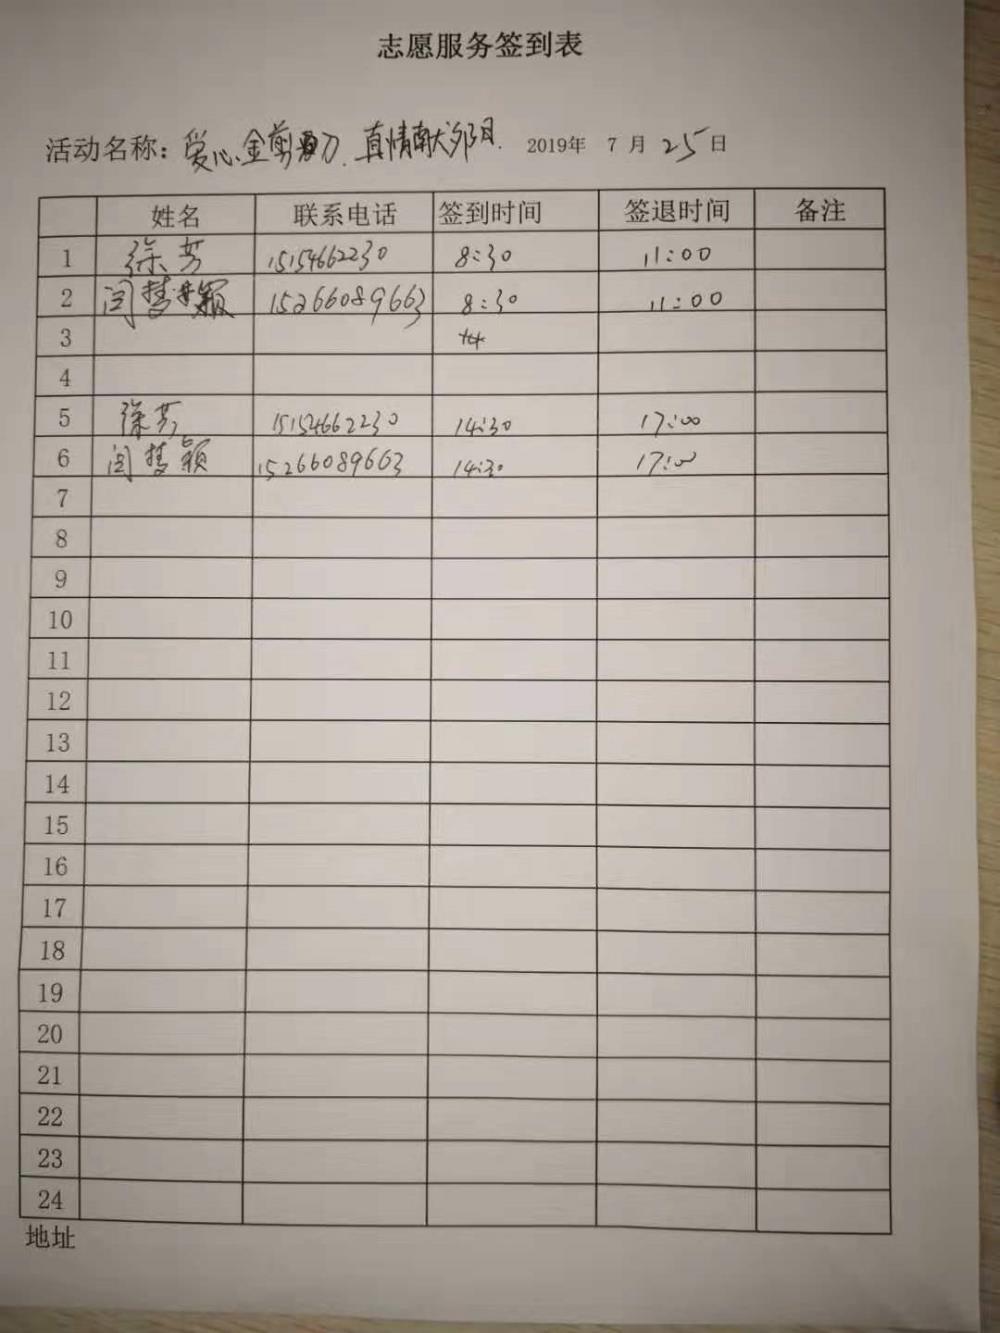 志愿服务签到表
活动名称：爱心金剪刀.真情献夕阳. 2019年 7 月 25 日
姓名 联系电话 签到时间 签退时间 备注
1 徐芳 15154662230 8:30 11:00
2 闫梦颖 15266089663 8:30 11:00
3
4
5 徐芳 15154662230 14:30 17:00
6 闫梦颖 15266089663 14:30 17:00
7
8
9
10
11
12
13
14
15
16
17
18
19
20
21
22
23
24
地址